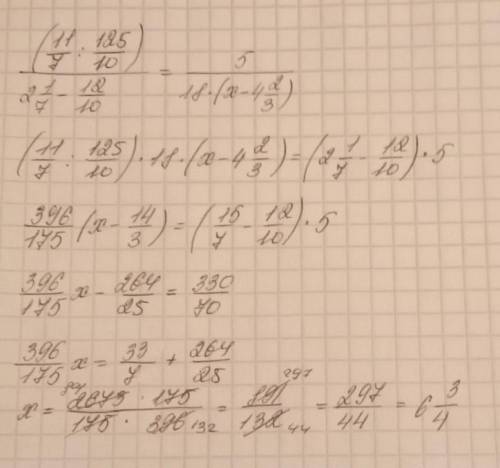 (11/7 : 125/10) / (2 1/7 - 12/10) = 5 / (18·(x - 4 2/3))
(11/7 : 125/10)·18·(x - 4 2/3) = (2 1/7 - 12/10)·5
396/175 (x - 14/3) = (15/7 - 12/10)·5
396/175 x - 264/25 = 330/70
396/175 x = 33/7 + 264/25
x = (2673 · 175) / (175 · 396) = 891/132 = 297/44 = 6 3/4
891 132 297 44